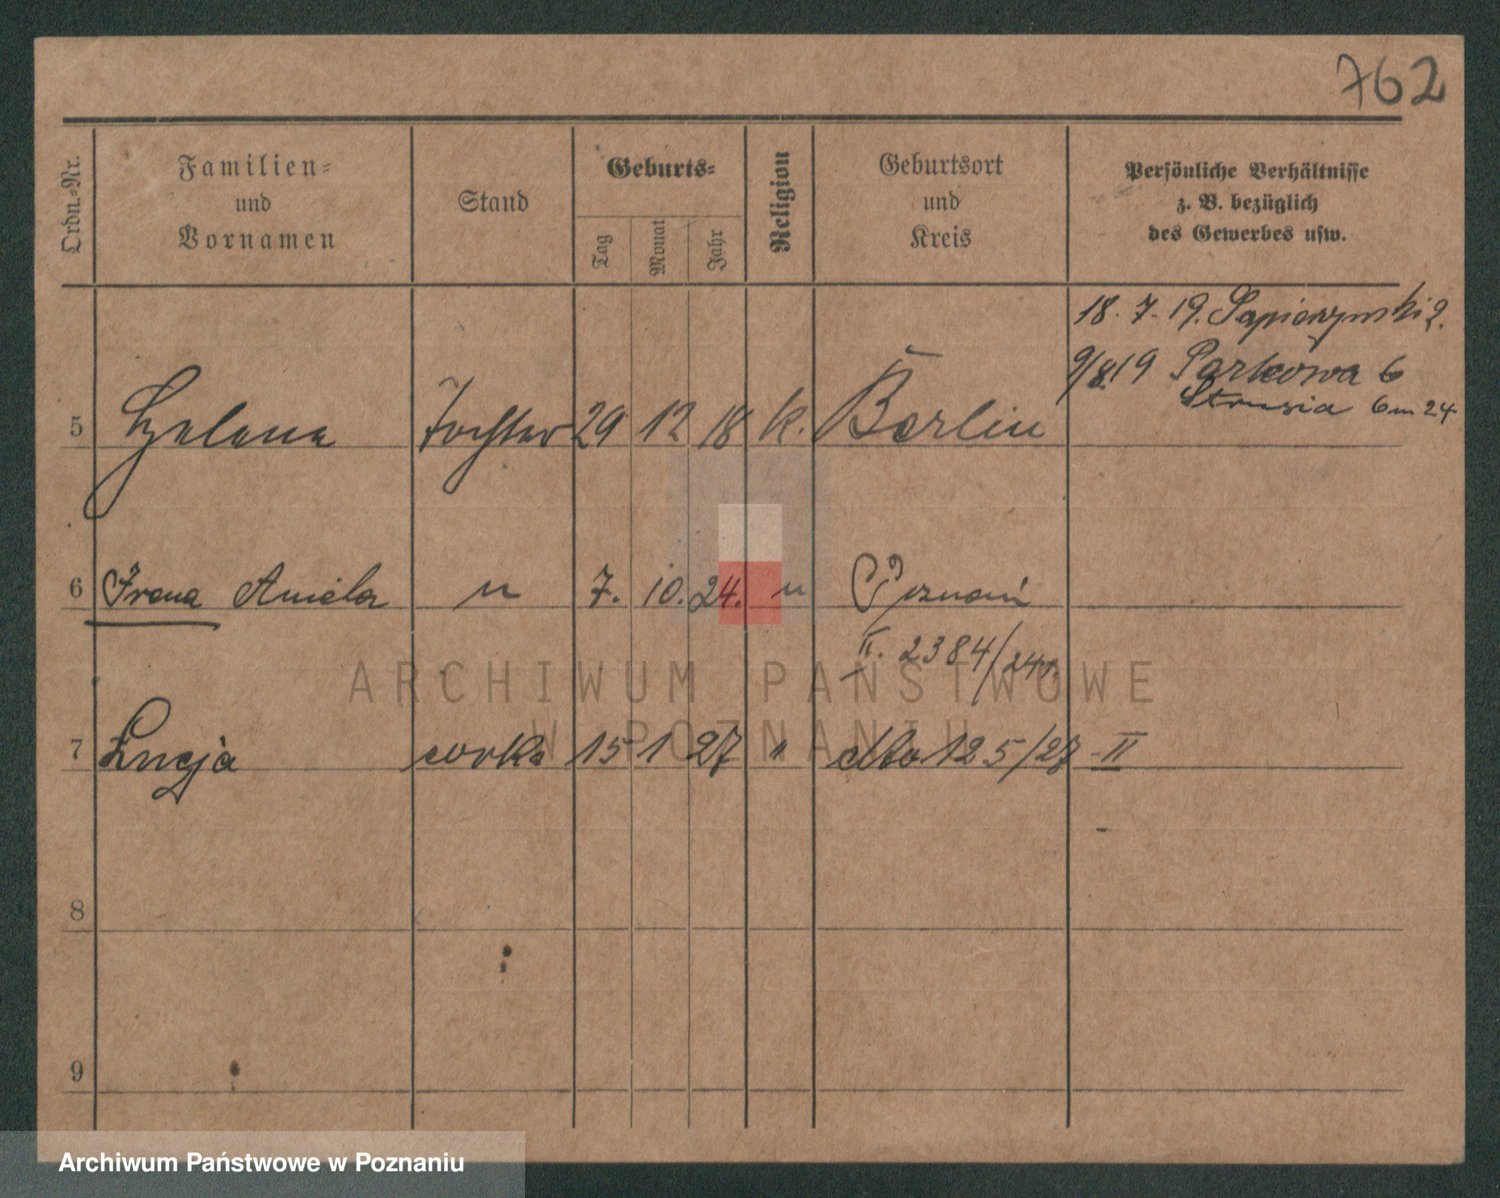 762
Ordn.-Nr.
Familien-
und
Vornamen
Stand
Geburts-
Tag
Monat
Jahr
Religion
Geburtsort
und
Kreis
Persönliche Verhältnisse
z. B. bezüglich
des Gewerbes usw.
18. 7. 19. Sapieżyński 2.
9/8.19 Parkowa 6
Strusia 6 m 24
5 Helena Tochter 29 12 18 k. Berlin
6 Irena Aniela " 7. 10. 24. " Poznań
II. 2384/24
7 Lucja corka 15 1 27 " dto 125/27 - II
8
9
ARCHIWUM PAŃSTWOWE
W POZNANIU
Archiwum Państwowe w Poznaniu